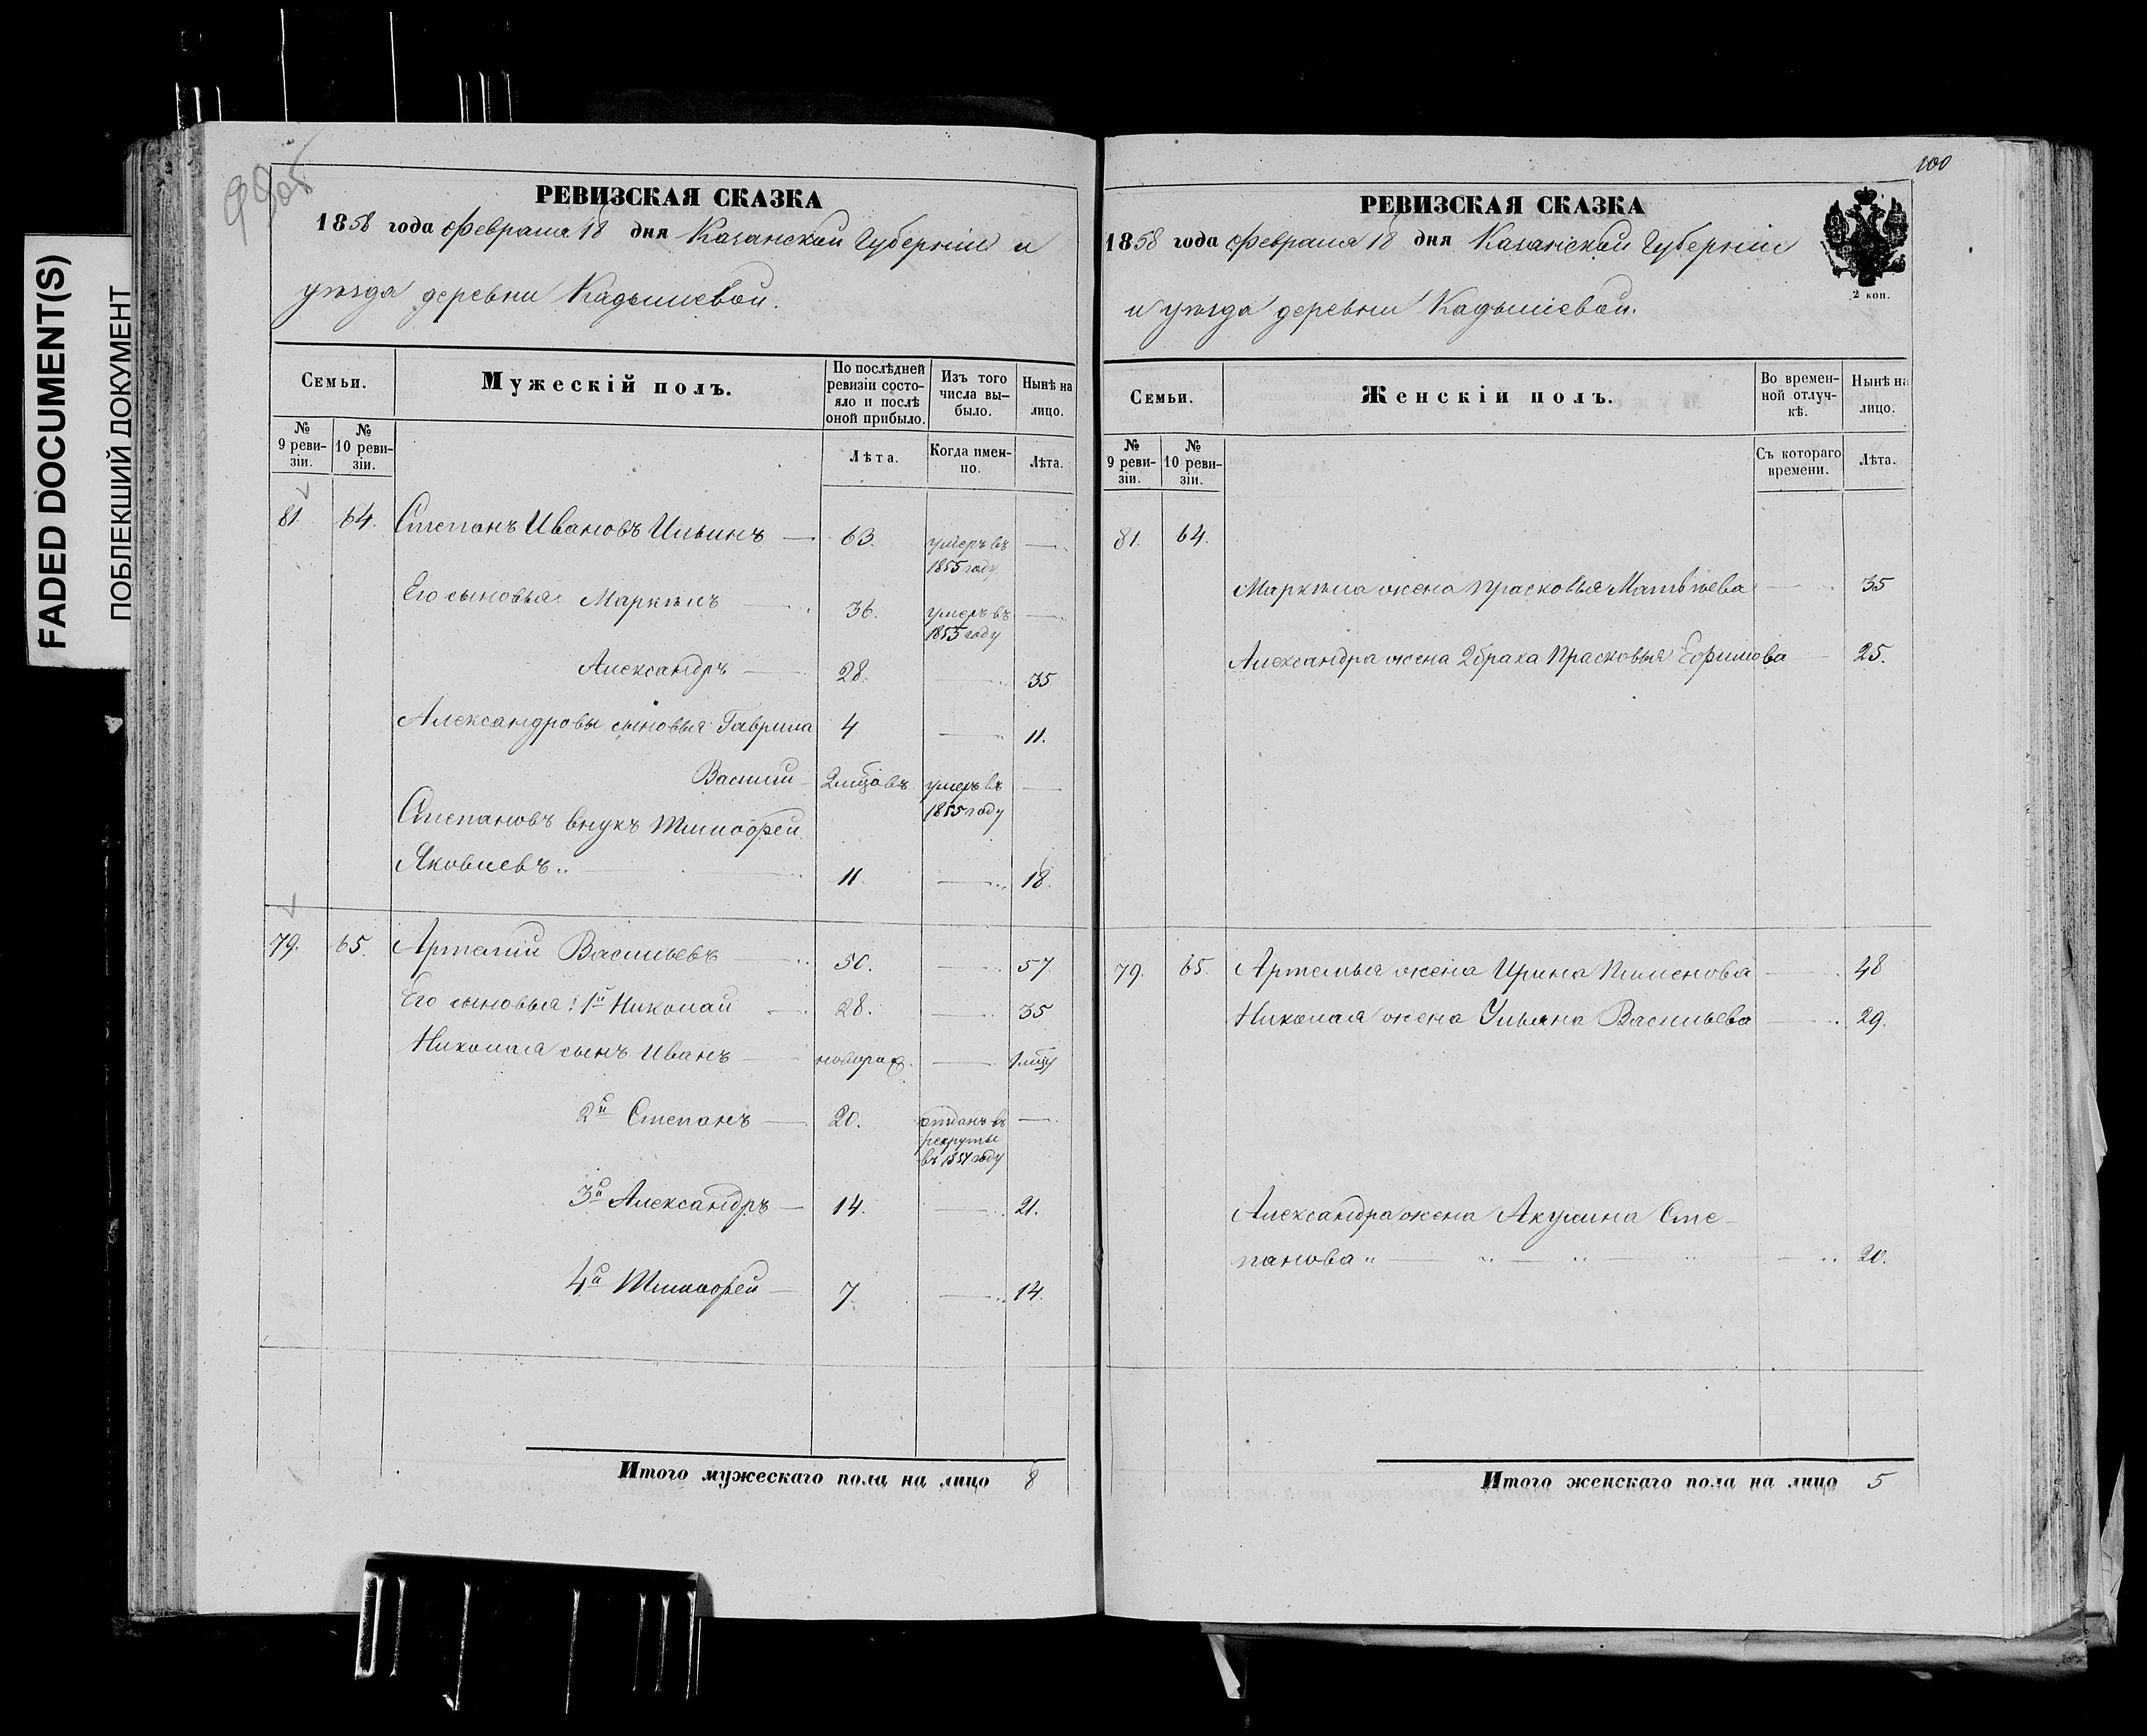 FADED DOCUMENT(S)
ПОБЛЕКШИЙ ДОКУМЕНТ
РЕВИЗСКАЯ СКАЗКА
1858 года февраля 18 дня Казанской Губерніи и
уѣзда деревни Кадышевой.
Семьи.
Мужескій полъ.
По послѣдней
ревизіи состо-
яло и послѣ
оной прибыло.
Изъ того
числа вы-
было.
Нынѣ на
лицо.
№
9 реви-
зіи.
№
10 реви-
зіи.
Лѣта.
Когда имен-
но.
Лѣта.
81. 64. Степанъ Ивановъ Ильинъ — 63. умеръ въ —
1855 году
Его сыновья: Маркелъ — 36. умеръ въ —
1855 году
Александръ — 28. — 35.
Александровы сыновья Гаврила 4 — 11.
Василій — 2 мѣсовъ умеръ въ —
1855 году
Степановъ внукъ Тимофей
Яковлевъ — 11. — 18.
79. 65. Артемій Васильевъ — 50. — 57.
Его сыновья: 1й Николай — 28. — 35
Николая сынъ Иванъ — новорож. — 1 мѣсц
2й Степанъ — 20. отданъ въ —
рекруты
въ 1854 году
3й Александръ — 14. — 21.
4й Тимофей — 7. — 14.
Итого мужескаго пола на лицо 8
100
РЕВИЗСКАЯ СКАЗКА
1858 года февраля 18 дня Казанской Губерніи
2 коп.
и уѣзда деревни Кадышевой.
Семьи.
Женскій полъ.
Во времен-
ной отлуч-
кѣ.
Нынѣ на
лицо.
№
9 реви-
зіи.
№
10 реви-
зіи.
Съ котораго
времени.
Лѣта.
81. 64.
Маркела жена Прасковья Матвѣева — 35
Александра жена 2 брака Прасковья Ефимова — 25.
79. 65. Артемья жена Ирина Пименова — 48
Николая жена Ульяна Васильева — 29.
Александра жена Акулина Сте-
панова — 20.
Итого женскаго пола на лицо 5